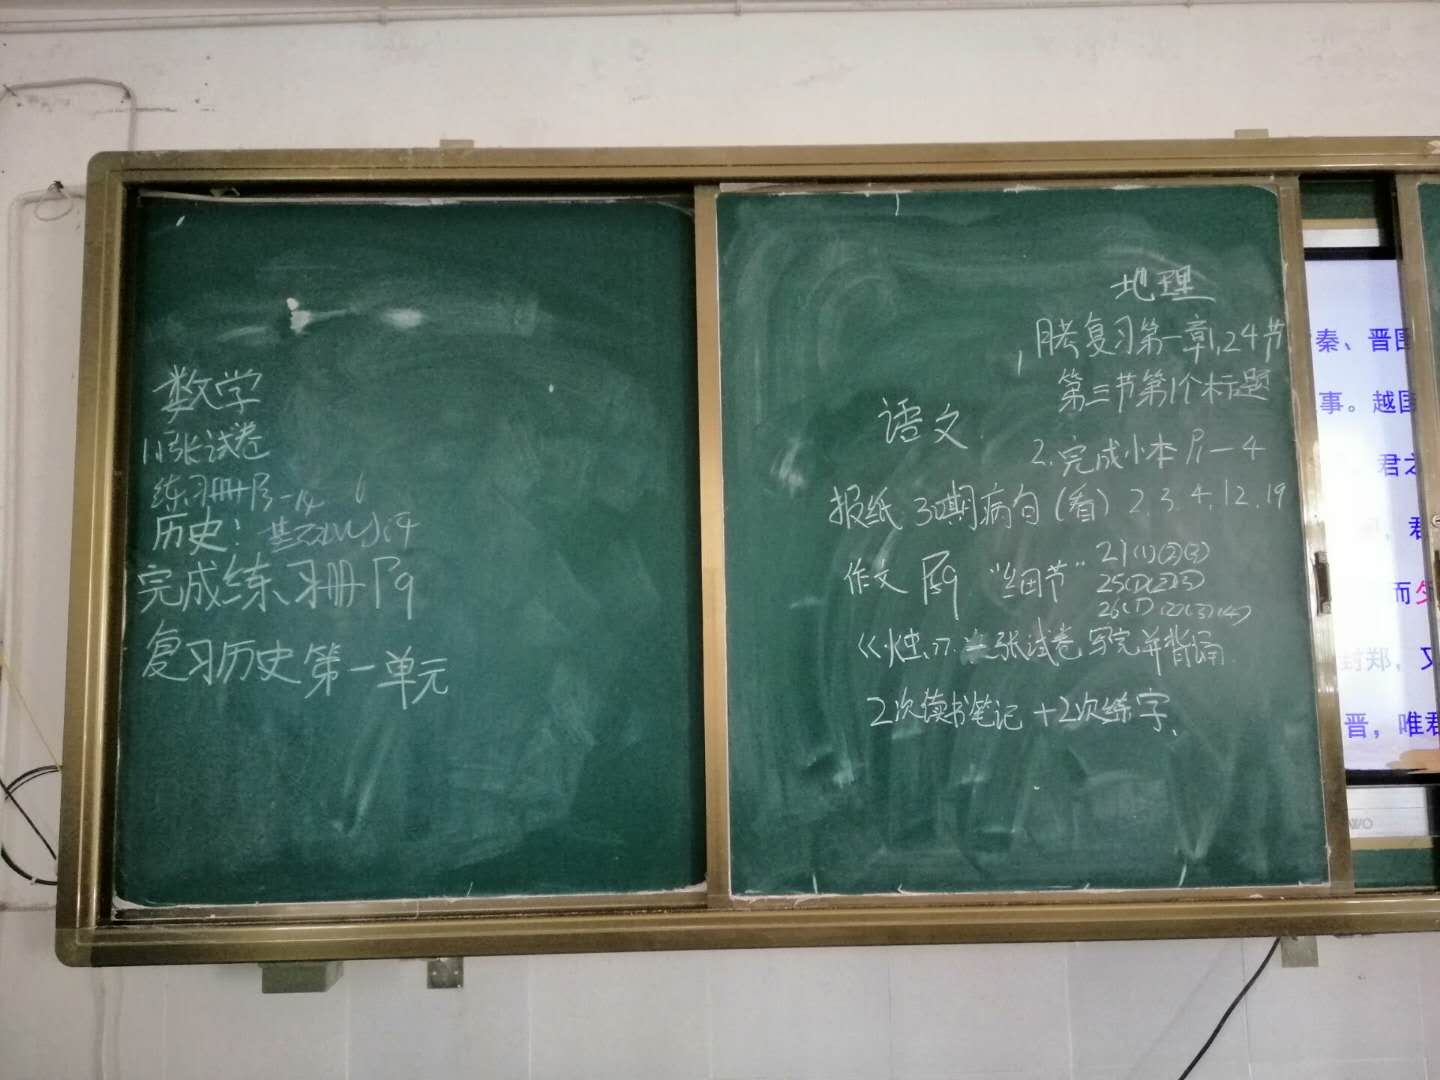 数学
1.1张试卷
练习册P13-14
历史：基础训练
完成练习册P9
复习历史第一单元
地理
1、月考复习第一章1、2、4节
第三节第1个标题
2.完成小本P1-4
语文
报纪 30期病句(看) 2.3.4.12.19
作文 P59 "细节" 21(1)(2)(3)
25(1)(2)(3)
26(1)(2)(3)(4)
《烛》二张试卷 写完并背诵
2次读书笔记+2次练字、
秦、晋国
事。越国
君之
君
而
封郑，又
晋，唯君